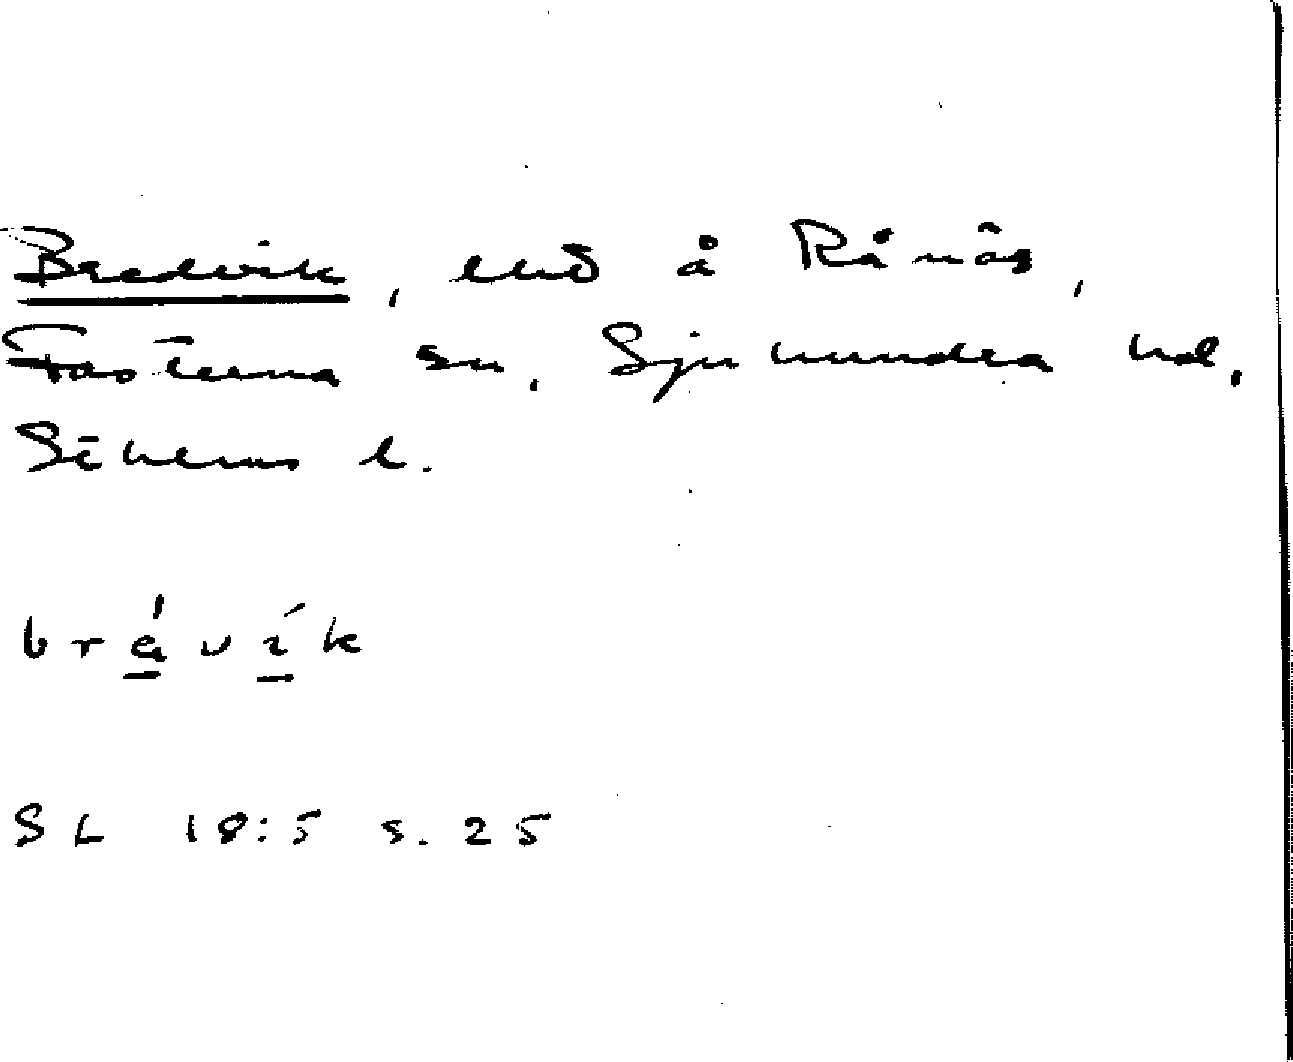 Bredvik, end å Rånäs,
Fasterna sn, Sjuhundra hd,
Sthlms l.
brávík
SL 18:5 s. 25